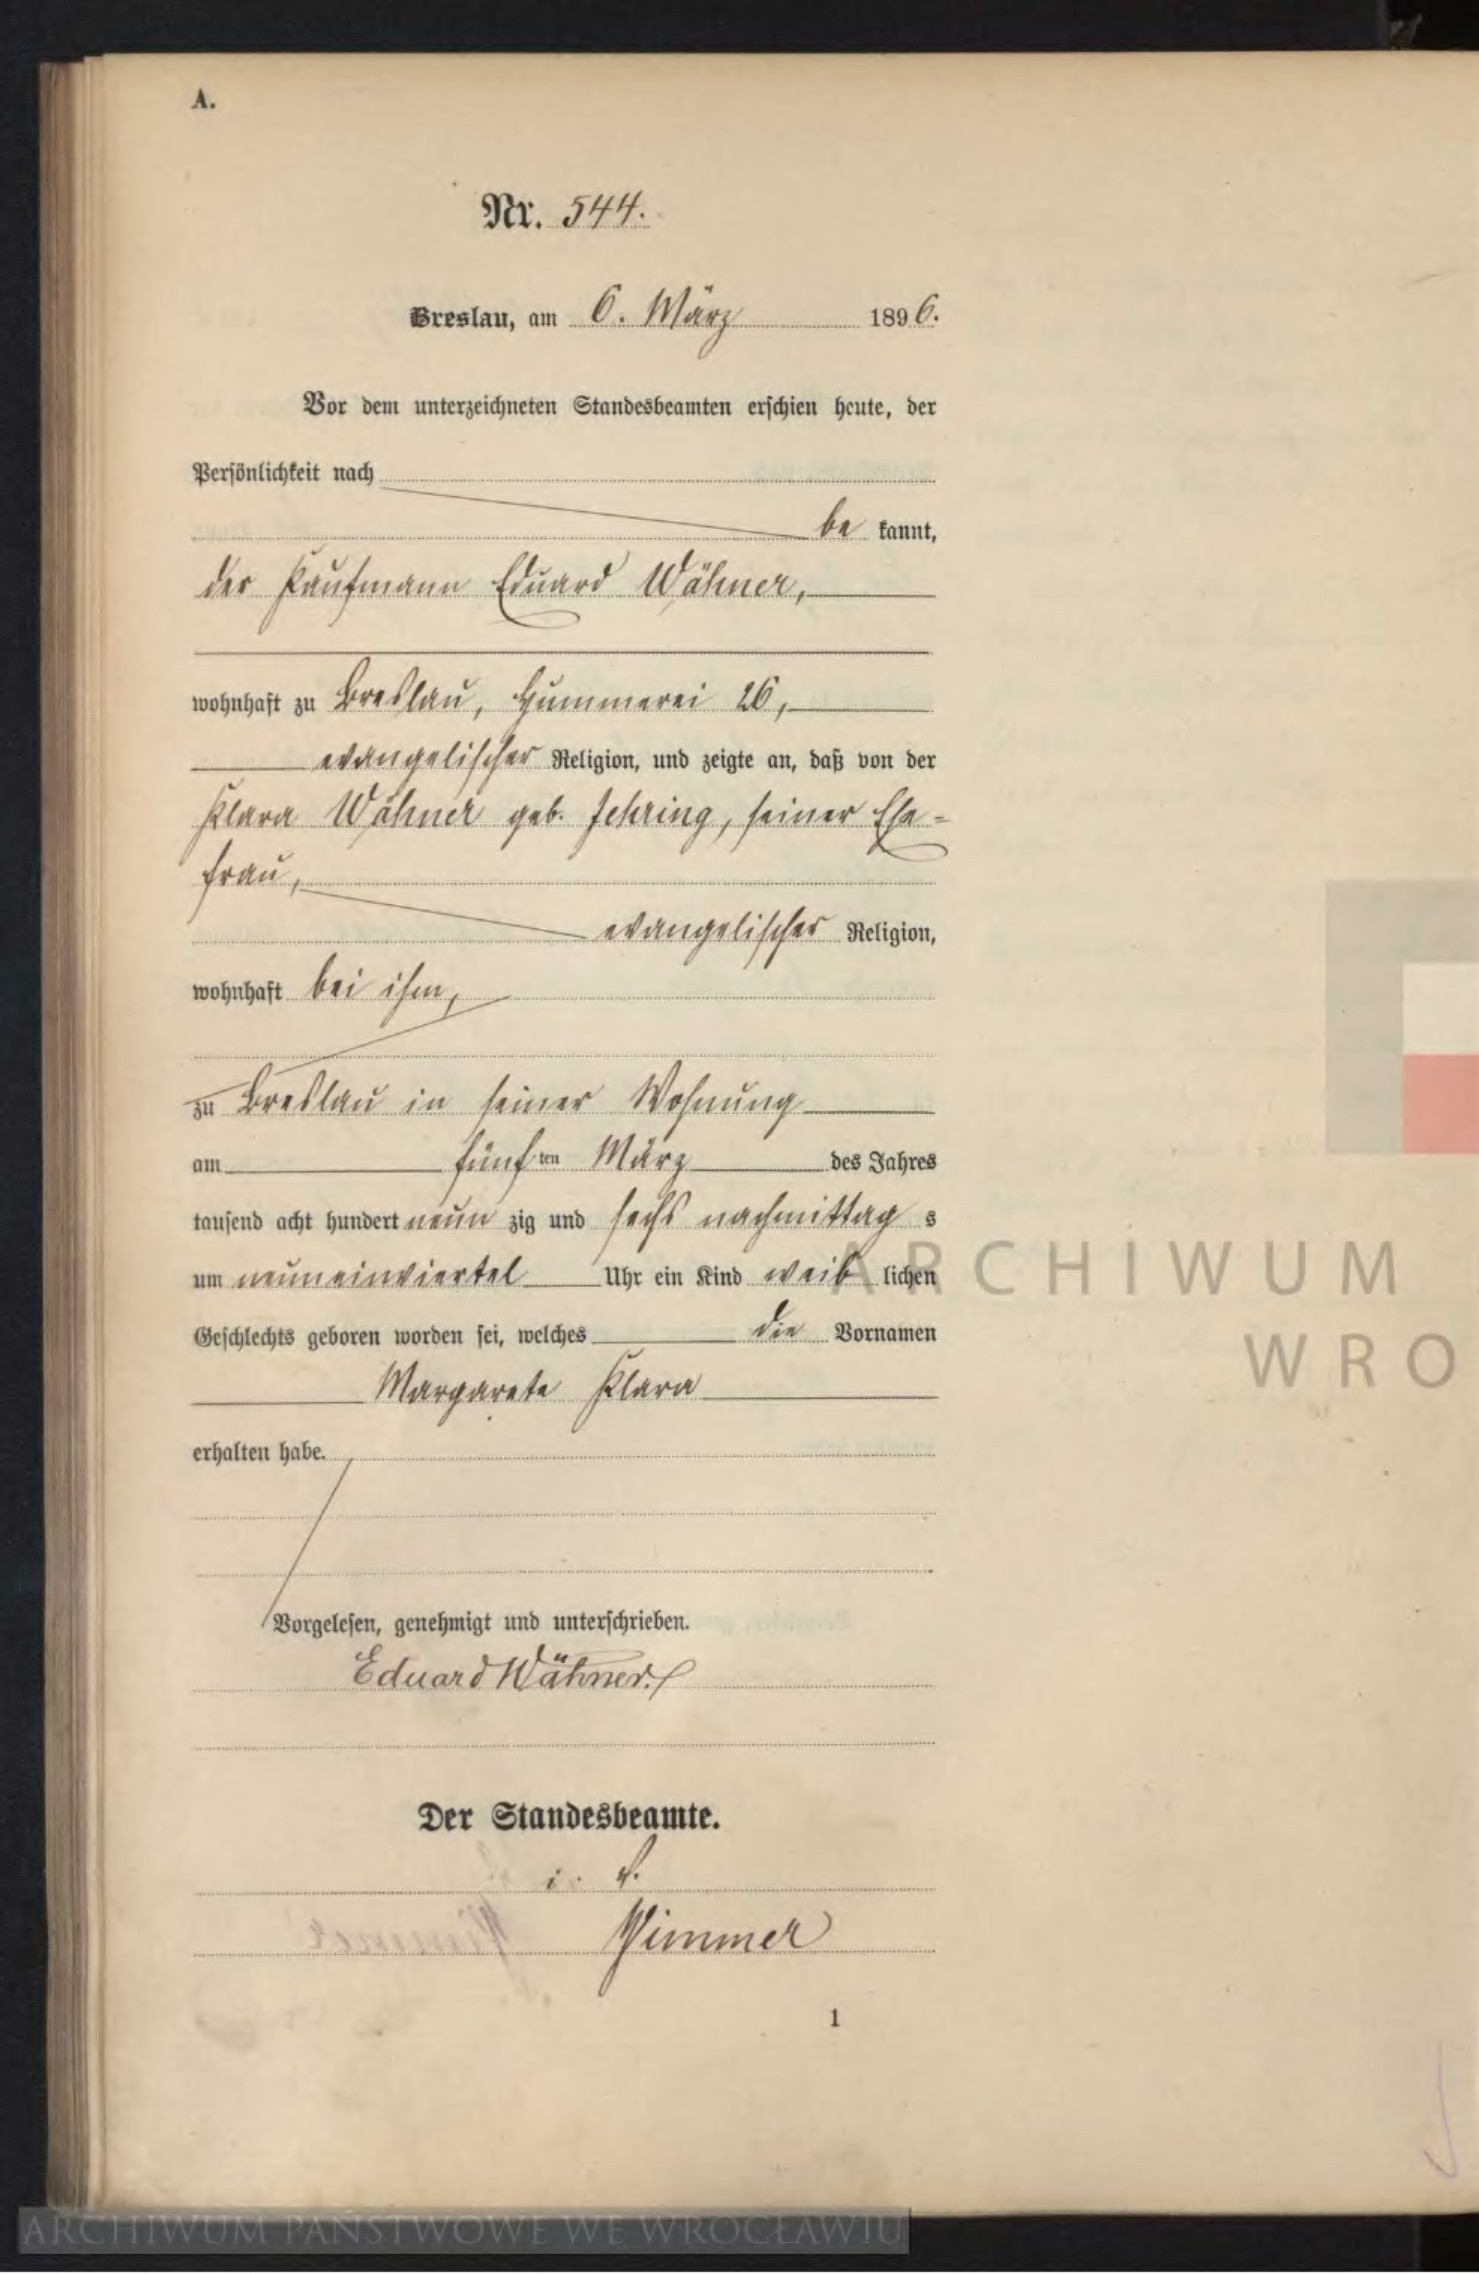 A.
Nr. 544.
Breslau, am 6. März 1896.
Vor dem unterzeichneten Standesbeamten erschien heute, der
Persönlichkeit nach
be kannt,
der Kaufmann Eduard Wähner,
wohnhaft zu Breslau, Hummerei 26,
evangelischer Religion, und zeigte an, daß von der
Klara Wähner geb. Jehring, seiner Ehe-
frau,
evangelischer Religion,
wohnhaft bei ihm,
zu Breslau in seiner Wohnung
am fünf ten März des Jahres
tausend acht hundert neun zig und sechs nachmittag s
um neuneinviertel Uhr ein Kind weib lichen
Geschlechts geboren worden sei, welches die Vornamen
Margarete Klara
erhalten habe.
Vorgelesen, genehmigt und unterschrieben.
Eduard Wähner.
Der Standesbeamte.
i. V.
1
ARCHIWUM
WRO
ARCHIWUM PAŃSTWOWE WE WROCŁAWIU